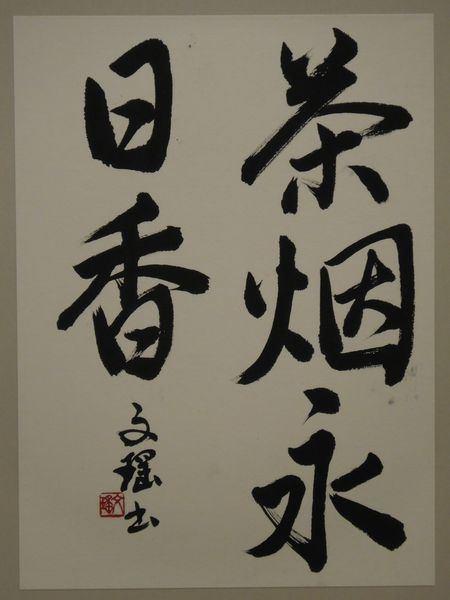 茶烟永
日香
文瑶书